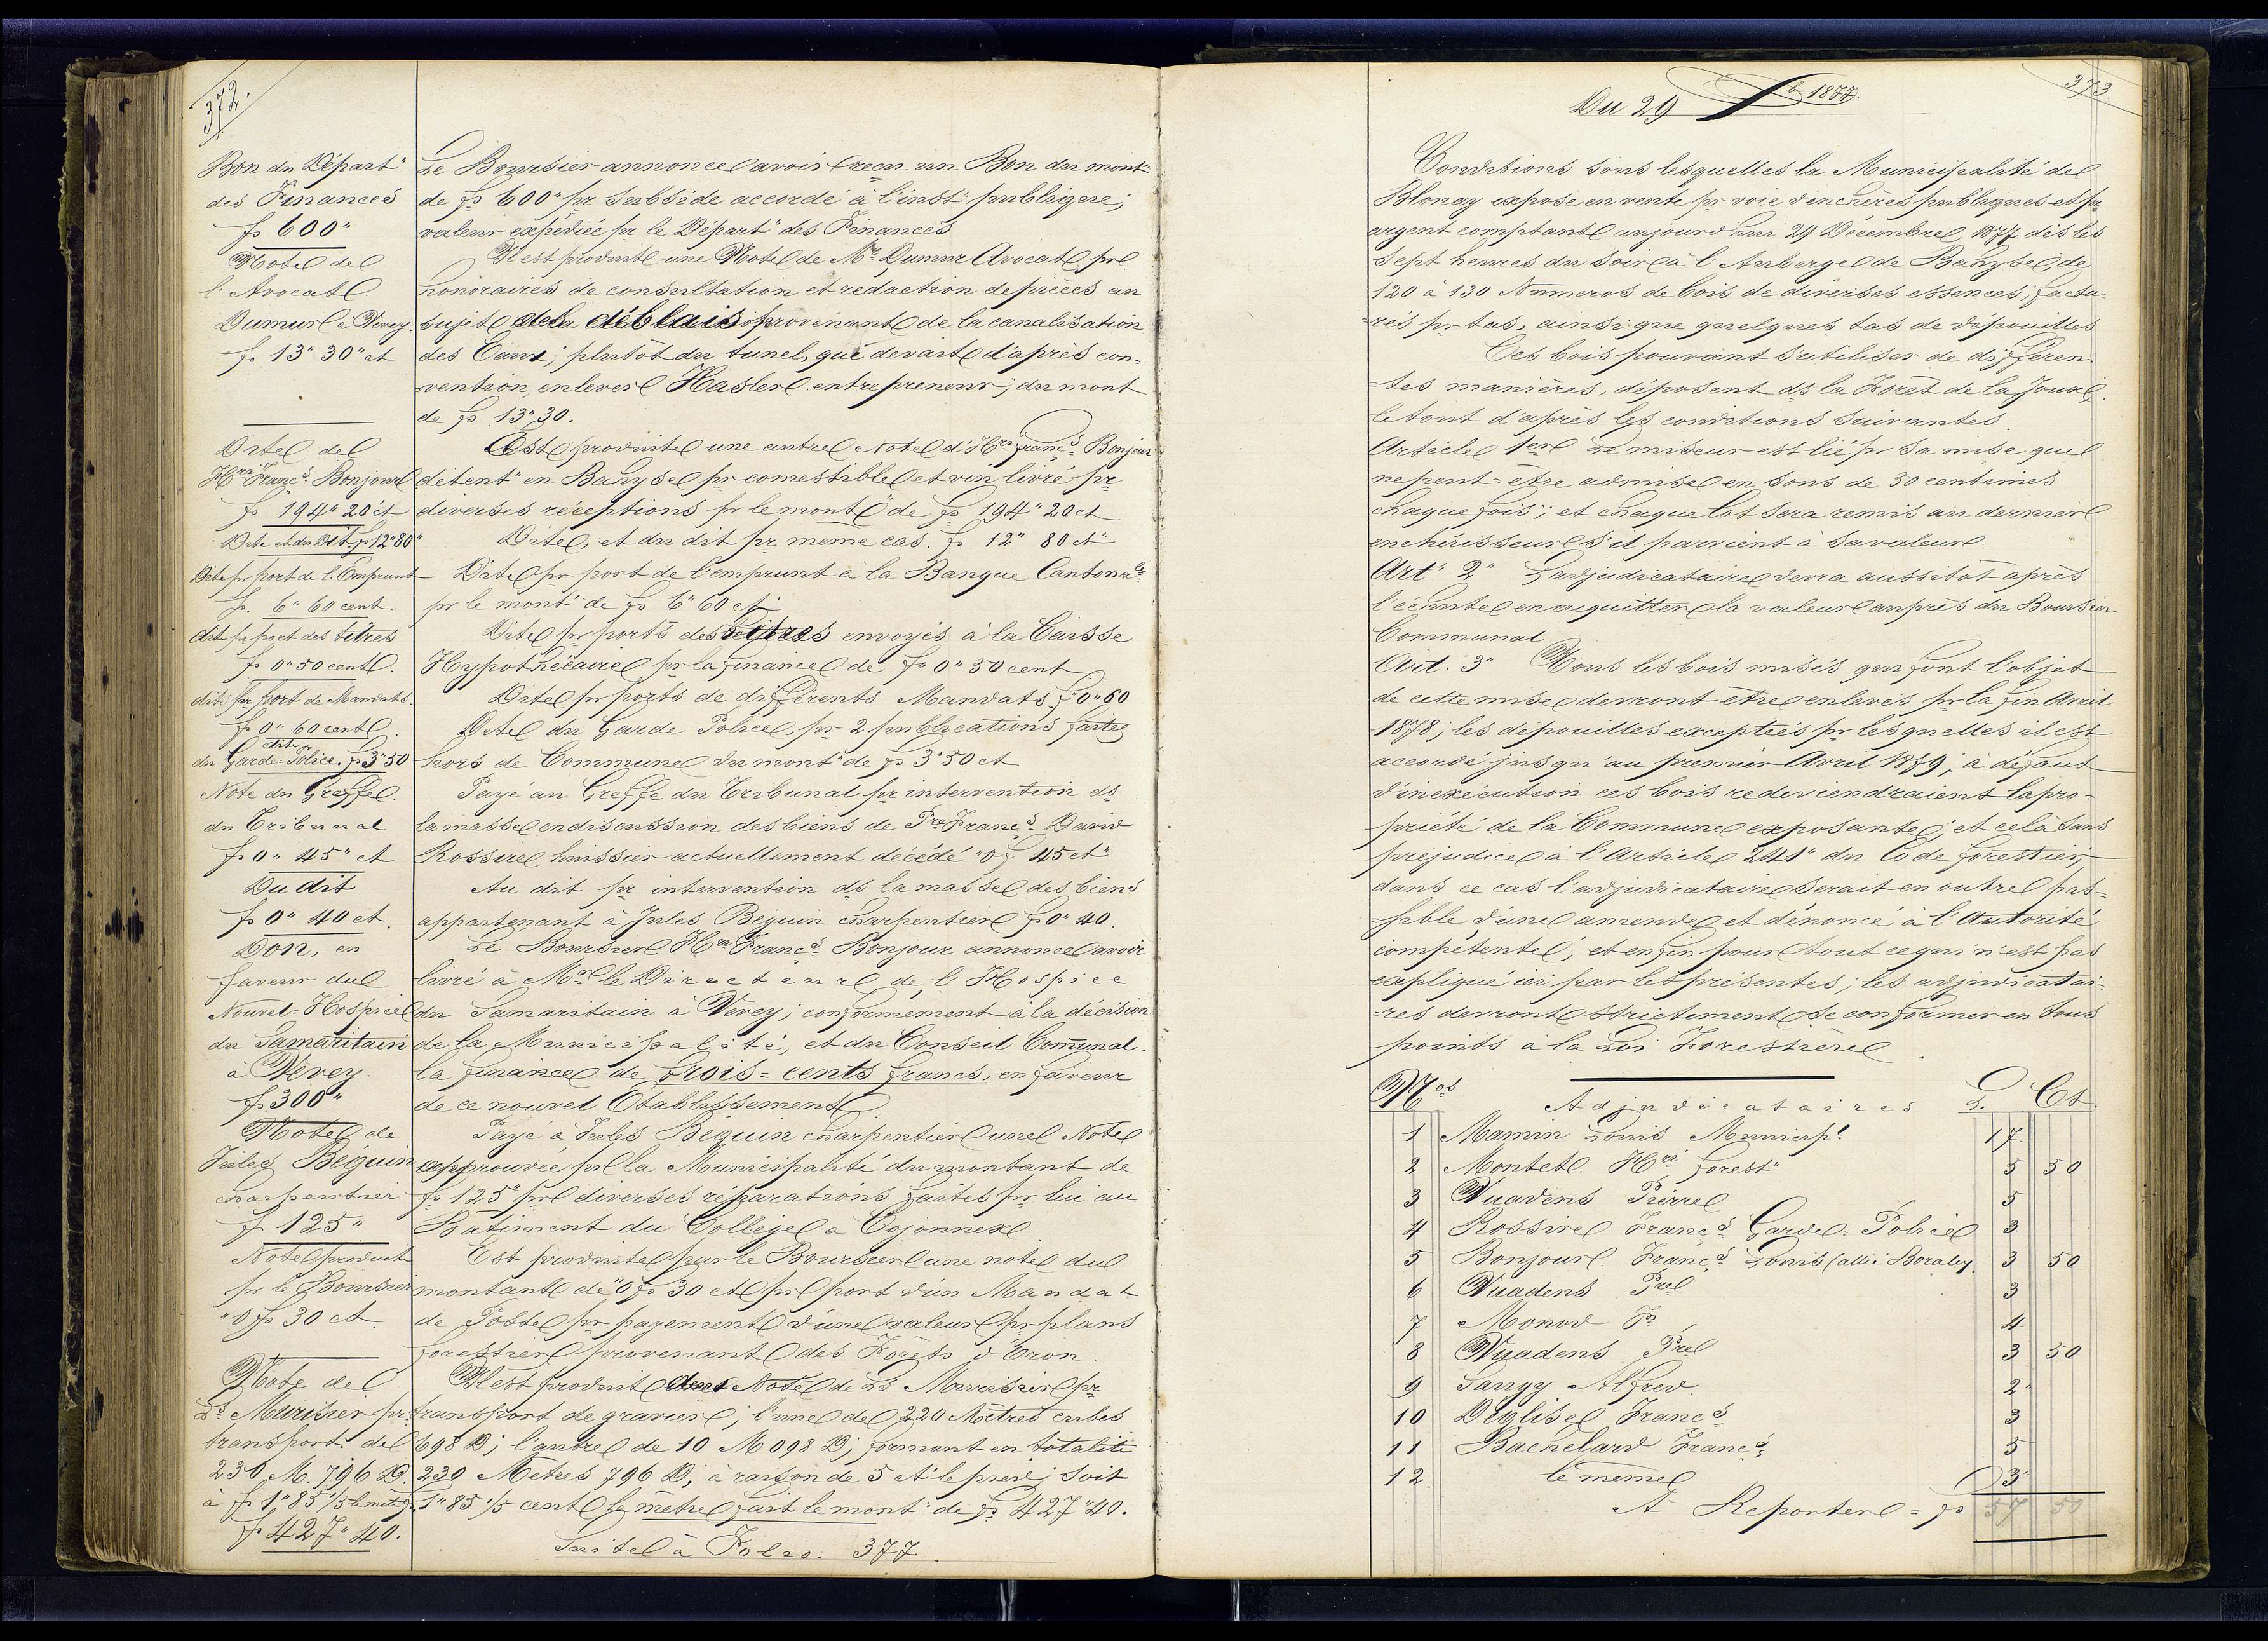 372.
Bon du Départ"
des Finances
fs 600"
Note de
l'Avocat
Dumur à Vevey.
fs 13" 30" ct
Dite de
Hri Francs Bonjour
fs 194" 20 ct
Dite et du Dit fs 12" 80"
Dite pr port de l'Emprunt
fs. 6" 60 cent.
dit pr port des titres
fs 0" 50 cent.
dite pr Port de Mandats.
fs 0" 60 cent
dite
du Garde-Police. fs 3" 50
Note du Greffe.
du Tribunal
fs 0" 45" ct
Du dit
fs 0" 40 ct.
Don, en
faveur du
Nouvel-Hospice
du Samaritain
à Vevey.
fs 300"
Note de
Jules Béguin
charpentier
fs 125"
Note produit
pr le Boursier
"0 fs 30 ct.
Note de
Ls Murisier pr
transport de
230 M. 796 D.
à fs 1" 85 1/5 le met.
fs 427" 40.
Le Boursier annonce avoir reçu un Bon du mont"
de fs 600" pr subside accordé à l'inst: publique;
valeur expédiée pr le Départ" des Finances
Il est produite une Note de Mr Dumur Avocat pr
honoraires de consultation et rédaction de pièces au
sujet de déblais provenant de la canalisation
des Eaux; plutôt du tunel, qué devait d'après con-
-vention, enlever Hasler entrepreneur; du mont
de fs 13" 30.
Est produite une autre Note d'Hri Francs Bonjour
détent" en Bahyse pr comestible et vin livré pr
diverses réceptions pr le mont" de fs 194" 20 ct
Dite, et du dit pr même cas. fs 12" 80 ct"
Dite pr port de l'emprunt à la Banque Cantonale
pr le mont" de fs 6" 60 ct
Dite pr ports des titres envoyés à la Caisse
Hypothécaire pr la finance de fs 0" 50 cent
Dite pr ports de différents Mandats fs 0" 60
Dite du Garde Police, pr 2 publications faites
hors de Commune du mont" de fs 3" 50 ct
Payé au Greffe du Tribunal pr intervention ds
la masse en discussion des biens de Pre Francs David
Rossire huissier actuellement décédé "0 fs 45 ct"
Au dit pr intervention ds la masse des biens
appartenant à Jules Béguin charpentier fs 0" 40.
Le Boursier Hri Francs Bonjour annonce avoir
livré à Mr le Directeur de l'Hospice
du Samaritain à Vevey; conformément à la décision
de la Municipalité, et du Conseil Communal.
la finance de trois=cents francs; en faveur
de ce nouvel Etablissement
Payé à Jules Béguin charpentier une Note
approuvée pr la Municipalité du montant de
fs 125" pr diverses réparations faites pr lui au
Bâtiment du Collège à Cojonnex
Est produite par le Boursier une note du
montant de "0 fs 30 ct pr port d'un Mandat
de Poste pr payement d'une valeur pr plans
forestier provenant des Forêts d'Oron
Il est produit deux Note de Ls Murisier pr
transport de gravier; l'une de 220 Mètres cubes
698 D; l'autre de 10 M 098 D; formant en totalité
230 Mètres 796 D; à raison de 5 ct le pied; soit
1" 85 1/5 cent le mètre fait le mont" de fs 427" 40.
Suite à Folio. 377.
373.
Du 29 Xb 1877.
Conditions sous lesquelles la Municipalité de
Blonay expose en vente pr voie d'enchères publiques et pr
argent comptant aujourd'hui 29 Décembre 1877 dès les
Sept heures du soir à l'Auberge de Bahyse, de
120 à 130 Numeros de bois de diverses essences, factu-
-rés pr tas, ainsi que quelques tas de dépouilles
Ces bois pouvant s'utiliser de différen-
-tes manières, déposent ds la Forêt de la Joux,
le tout d'après les conditions suivantes.
Article 1er Le miseur est lié pr sa mise qui
ne peut-être admise en sous de 50 centimes
chaque fois; et chaque lot sera remis au dernier
enchérisseur s'il parvient à sa valeur.
Art" 2" L'adjudicataire devra aussitôt après
l'échute en acquitter la valeur auprès du Boursier
Communal
Art. 3" Tous les bois misés qui font l'objet
de cette mise devront être enlevés pr la fin Avril
1878; les dépouilles exceptées pr lesquelles il est
accordé jusqu'au premier Avril 1879; à défaut
d'inexécution ces bois redeviendraient la pro-
-priété de la Commune exposante; et celà sans
préjudice à l'Article 241" du Code forestier,
dans ce cas l'adjudicataire serait en outre pas-
-sible d'une amende et dénoncé à l'Autorité
compétente, et enfin pour tout ce qui n'est pas
expliqué ici par les présentes; les adjudicatai-
-res devront strictement se conformer en tous
points à la Loi Forestière.
Nos Adjudicataires fs. Ct.
1 Mamin Louis Municipl 17
2 Montet Hri forest" 5 50
3 Vuadens Pierre 5
4 Rossire Francs Garde-Police 3
5 Bonjour Francs Louis (allié Boraley 3 50
6 Vuadens Pre 3
7 Monod Fs 4
8 Vuadens Pre 3 50
9 Tangy Alfred. 2
10 Déglise Francs 3
11 Bachelard Francs 5
12 le même 3
A Reporter = fs 57 50